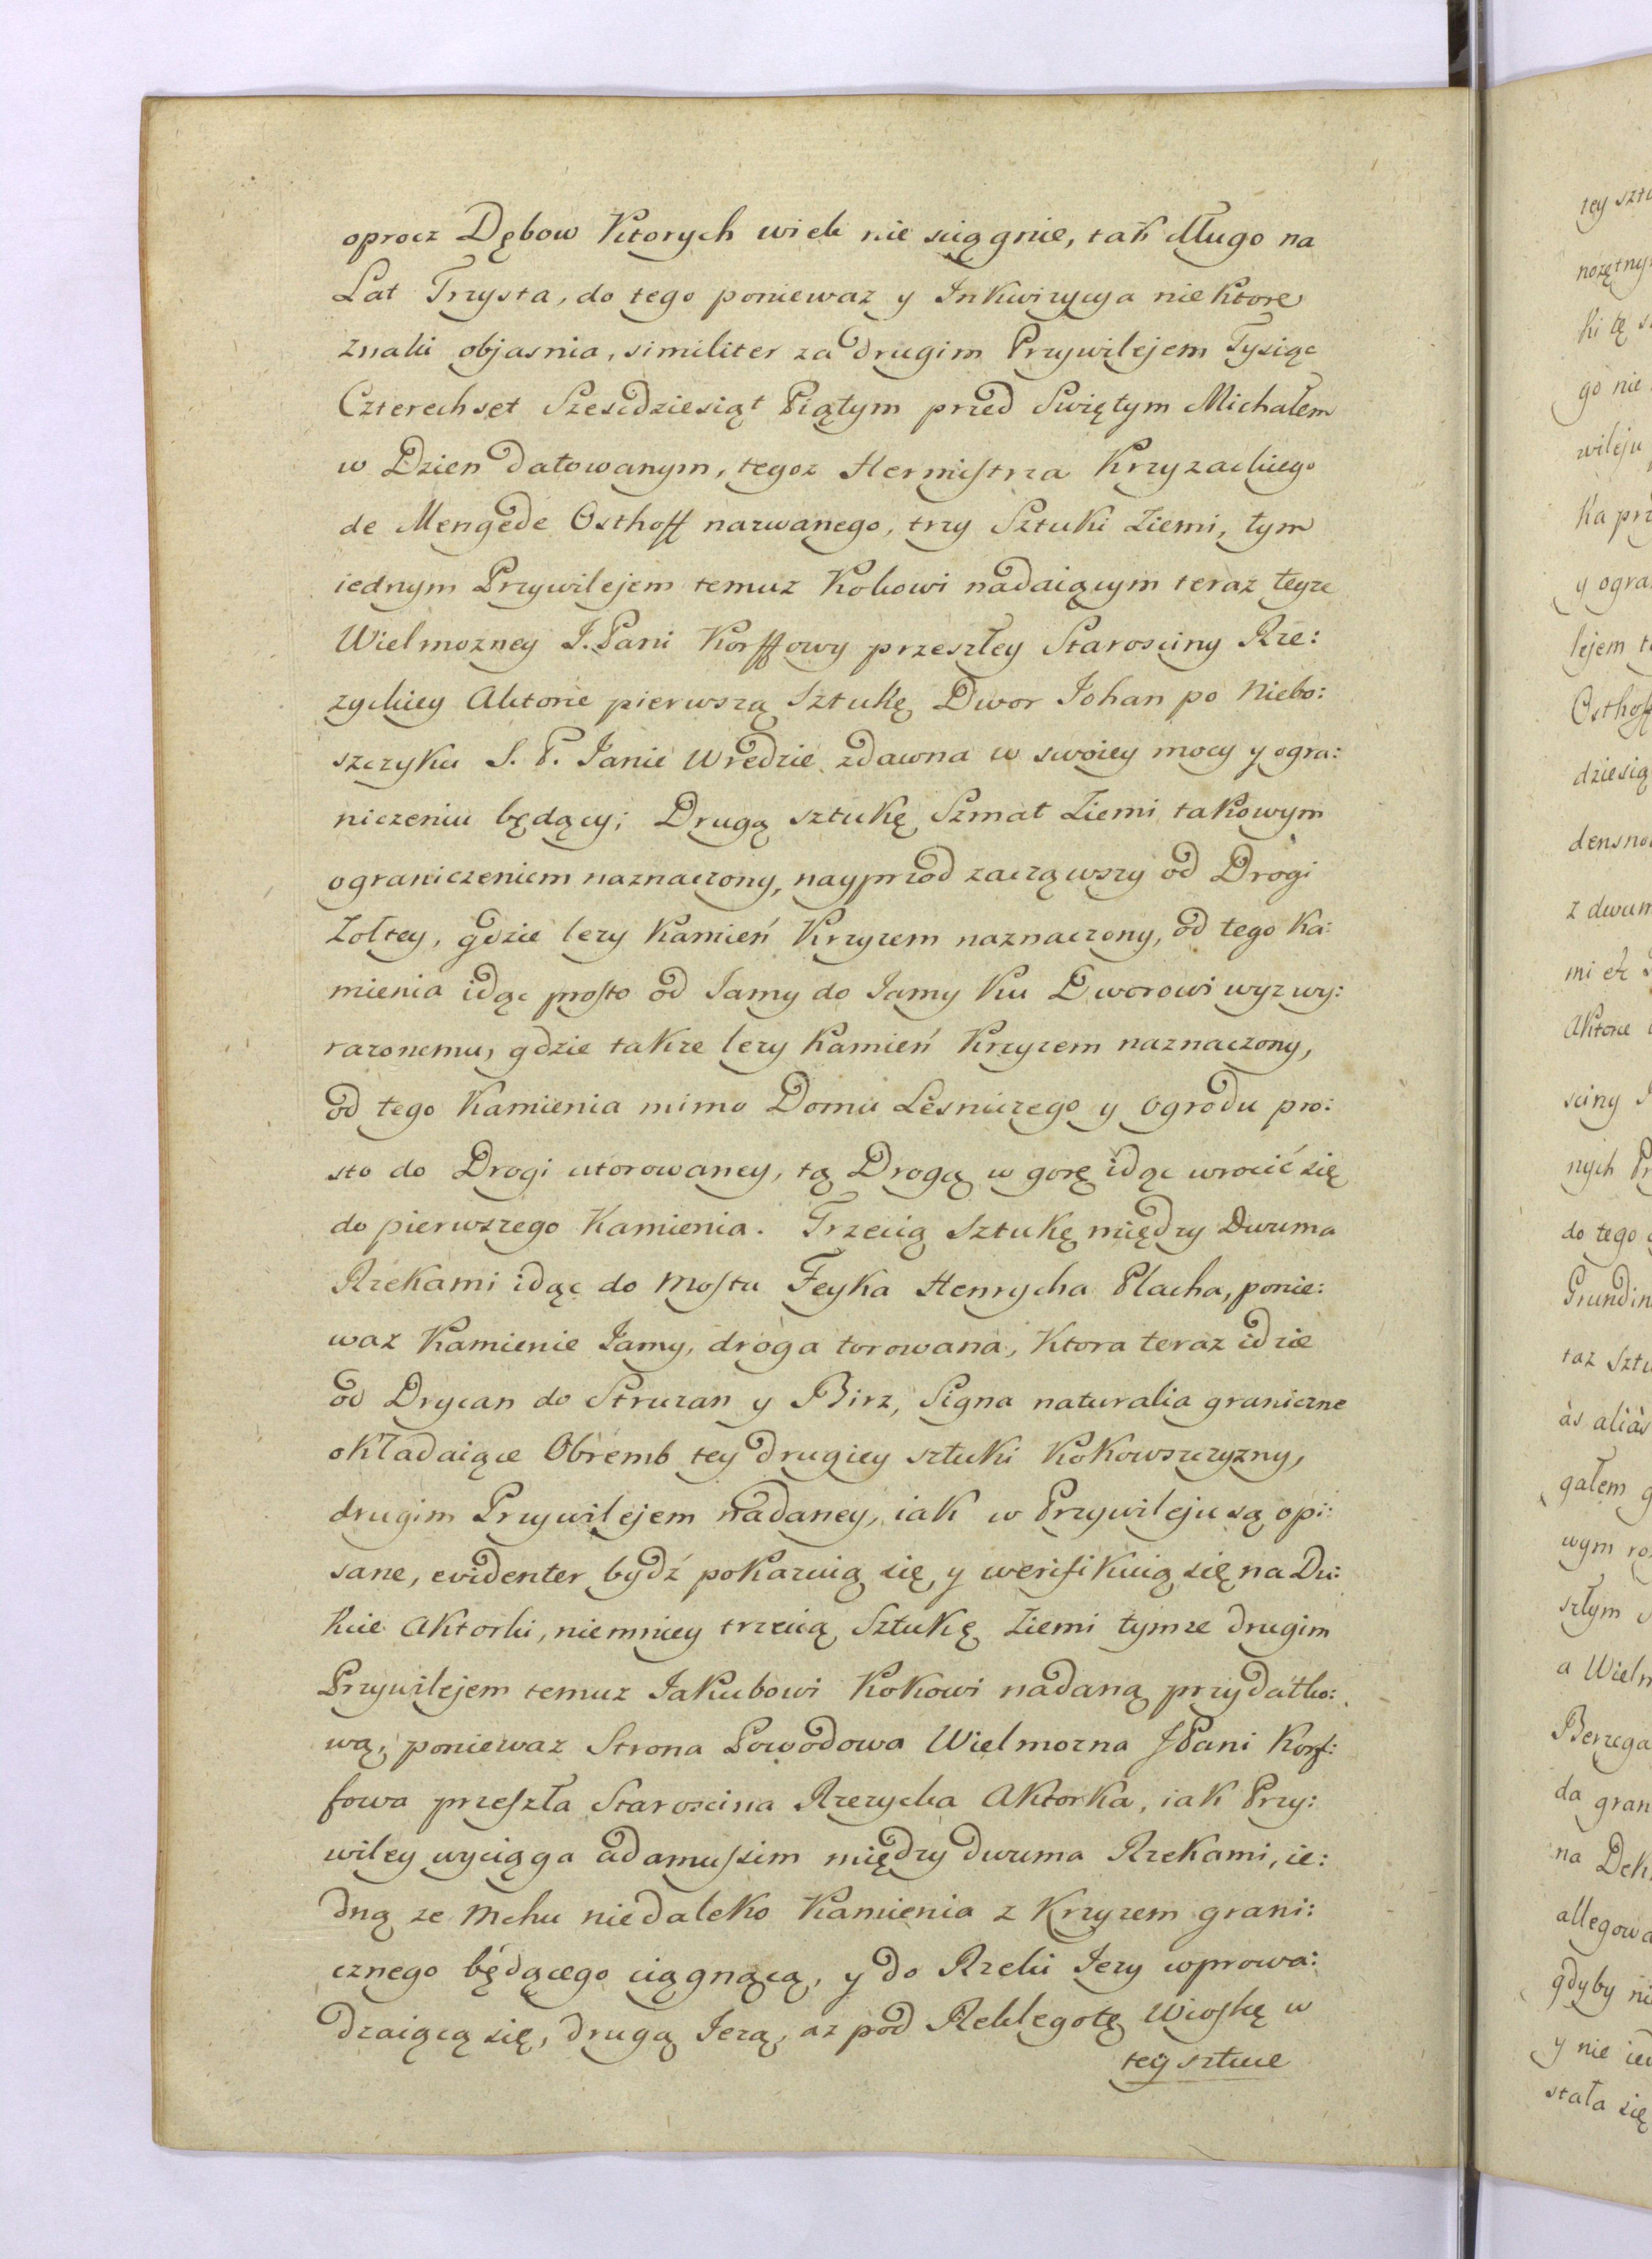 oprocz Dębow Ktorych wiek nie sięgnie, tak długo na
Lat Trzysta, do tego poniewaz y Inkwizycya nie ktore
znaki objasnia, similiter za drugim Przywilejem Tysiąc
Czterechset Szescdziesiąt Piątym przed Swiętym Michałem
w Dzien datowanym, tegoz Hermistrza Krzyzackiego
de Mengede Osthoff nazwanego, trzy Sztuki Ziemi, tym
iednym Przywilejem temuz Kokowi nadaiącym teraz teyze
Wielmozney J. Pani Korffowy przeszłey Starosciny Rze:
zyckiey Aktorce pierwszą Sztukę Dwor Johan po Niebo:
szczyku S. P. Janie Wredzie zdawna w swoiey mocy y ogra:
niczeniu będący; Drugą sztukę Szmat Ziemi takowym
ograniczeniem naznaczony, nayprzod zacząwszy od Drogi
Zołtey, gdzie lezy Kamień Krzyzem naznaczony, od tego Ka:
mienia idąc prosto od Jamy do Jamy Ku Dworowi wyz wy:
razonemu, gdzie takze lezy Kamień Krzyzem naznaczony,
od tego Kamienia mimo Domu Lesniczego y Ogrodu pro:
sto do Drogi utorowaney, tą Drogą w gorę idąc wrocić się
do pierwszego Kamienia. Trzecią Sztukę między Dwuma
Rzekami idąc do Mostu Feyka Henrycha Placha, ponie:
waz Kamienie Jamy, droga torowana, Ktora teraz idzie
od Drycan do Struzan y Birz, Signa naturalia graniczne
okładaiące Obremb tey drugiey sztuki Kokowszczyzny,
drugim Przywilejem nadaney, iak w Przywileju są opi:
sane, evidenter bydź pokazuią się, y weryfikuią się na Du:
kcie Aktorki, niemniey trzecią Sztukę Ziemi tymze drugim
Przywilejem temuz Jakubowi Kokowi nadaną przydatko:
wą, poniewaz Strona Powodowa Wielmozna JPani Korf:
fowa przeszła Staroscina Rzezycka Aktorka, iak Przy:
wiley wyciąga adamussim między dwuma Rzekami, ie:
dną ze Mchu niedaleko Kamienia z Krzyzem grani:
cznego będącego ciągnącą, y do Rzeki Jezy wprowa:
dzaiącą się, drugą Jezą, az pod Reklegotę Wioskę w
tey sztuce
tey sztu
ki tę s
go nie
wileju
ka prz
y ogra
lejem t
Osthoff
dziesią
densno
z dwum
mi etc
Aktorce
sciny
nych Pr
do tego
Grundin
taz Sztu
às aliàs
gałem g
wym ro
szłym
a Wielm
Berzega
da gran
na Dek
allegowa
gdyby ni
y nie ied
stała się